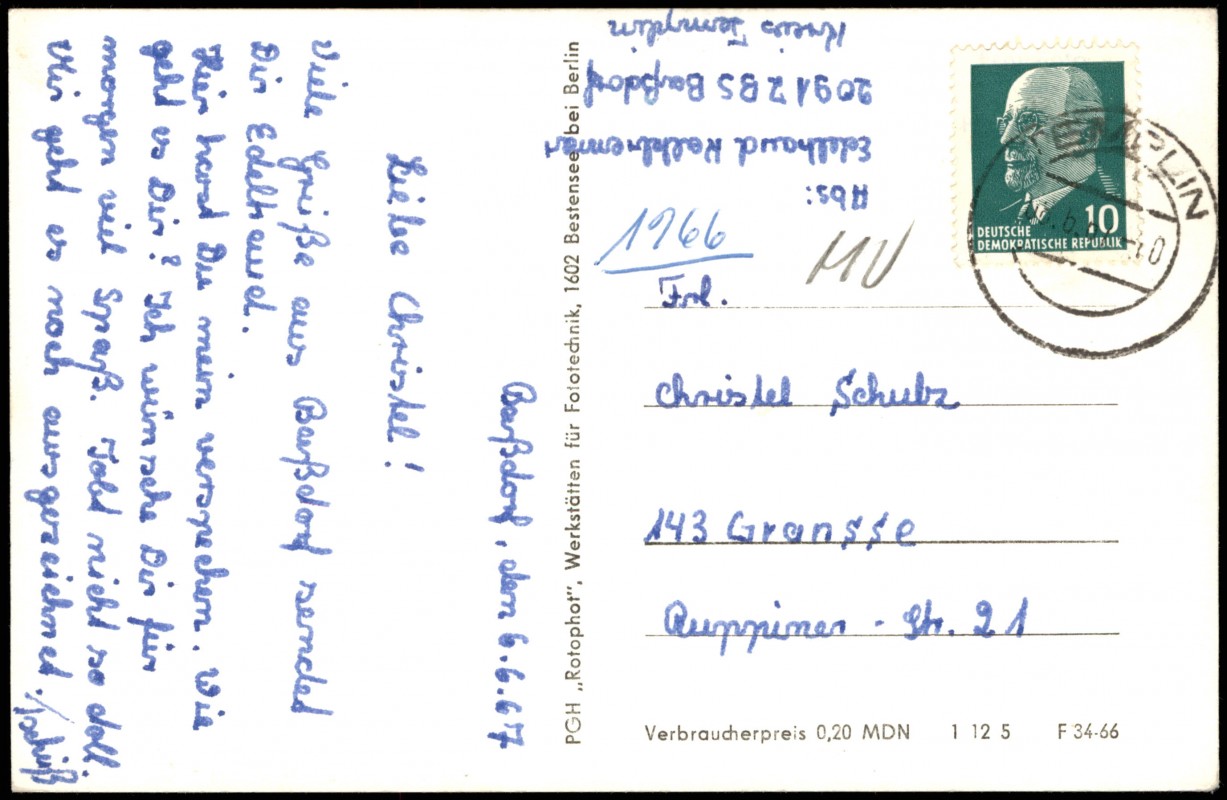 Baßdorf, den 6.6.67
Liebe Christel!
Viele Grüße aus Baßdorf sendet
Dir Edeltraud.
Hier hast Du mein versprechen. Wie
geht es Dir? Ich wünsche Dir für
morgen viel Spaß. Tobt nicht so doll.
Mir geht es noch ausgezeichnet. Tschüß
PGH „Rotophot", Werkstätten für Fototechnik, 1602 Bestensee bei Berlin
Abs:
Edeltraud
2091 Z BS Baßdorf
Kreis Templin
1966
MV
10
DEUTSCHE
DEMOKRATISCHE REPUBLIK
TEMPLIN
Frl.
Christel Schulz
143 Gransse
Ruppiner - Str. 21
Verbraucherpreis 0,20 MDN 1 12 5 F 34-66